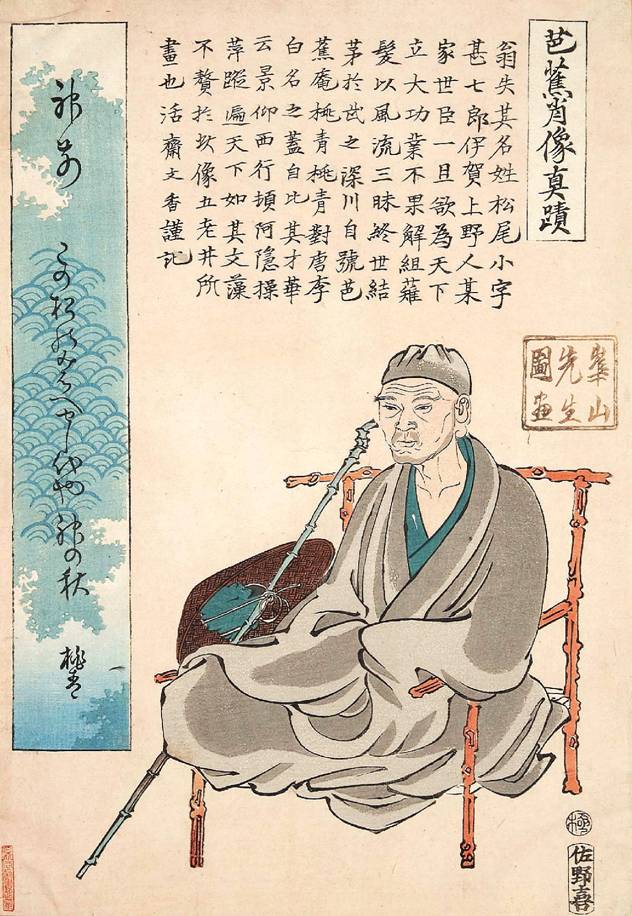 芭蕉肖像真蹟
翁失其名姓松尾小字
甚七郎伊賀上野人某
家世臣一旦欲為天下
立大功業不果解組薙
髮以風流三昧終世結
茅於武之深川自號芭
蕉庵桃青桃青對唐李
白名之蓋自比其才華
云景仰西行頓阿隱操
萍蹤遍天下如其文藻
不贅於玆像五老井所
畫也活齋文香謹記
崋山
先生
圖画
神前
この松のみはへせし代や神の秋
桃青
極
佐野喜